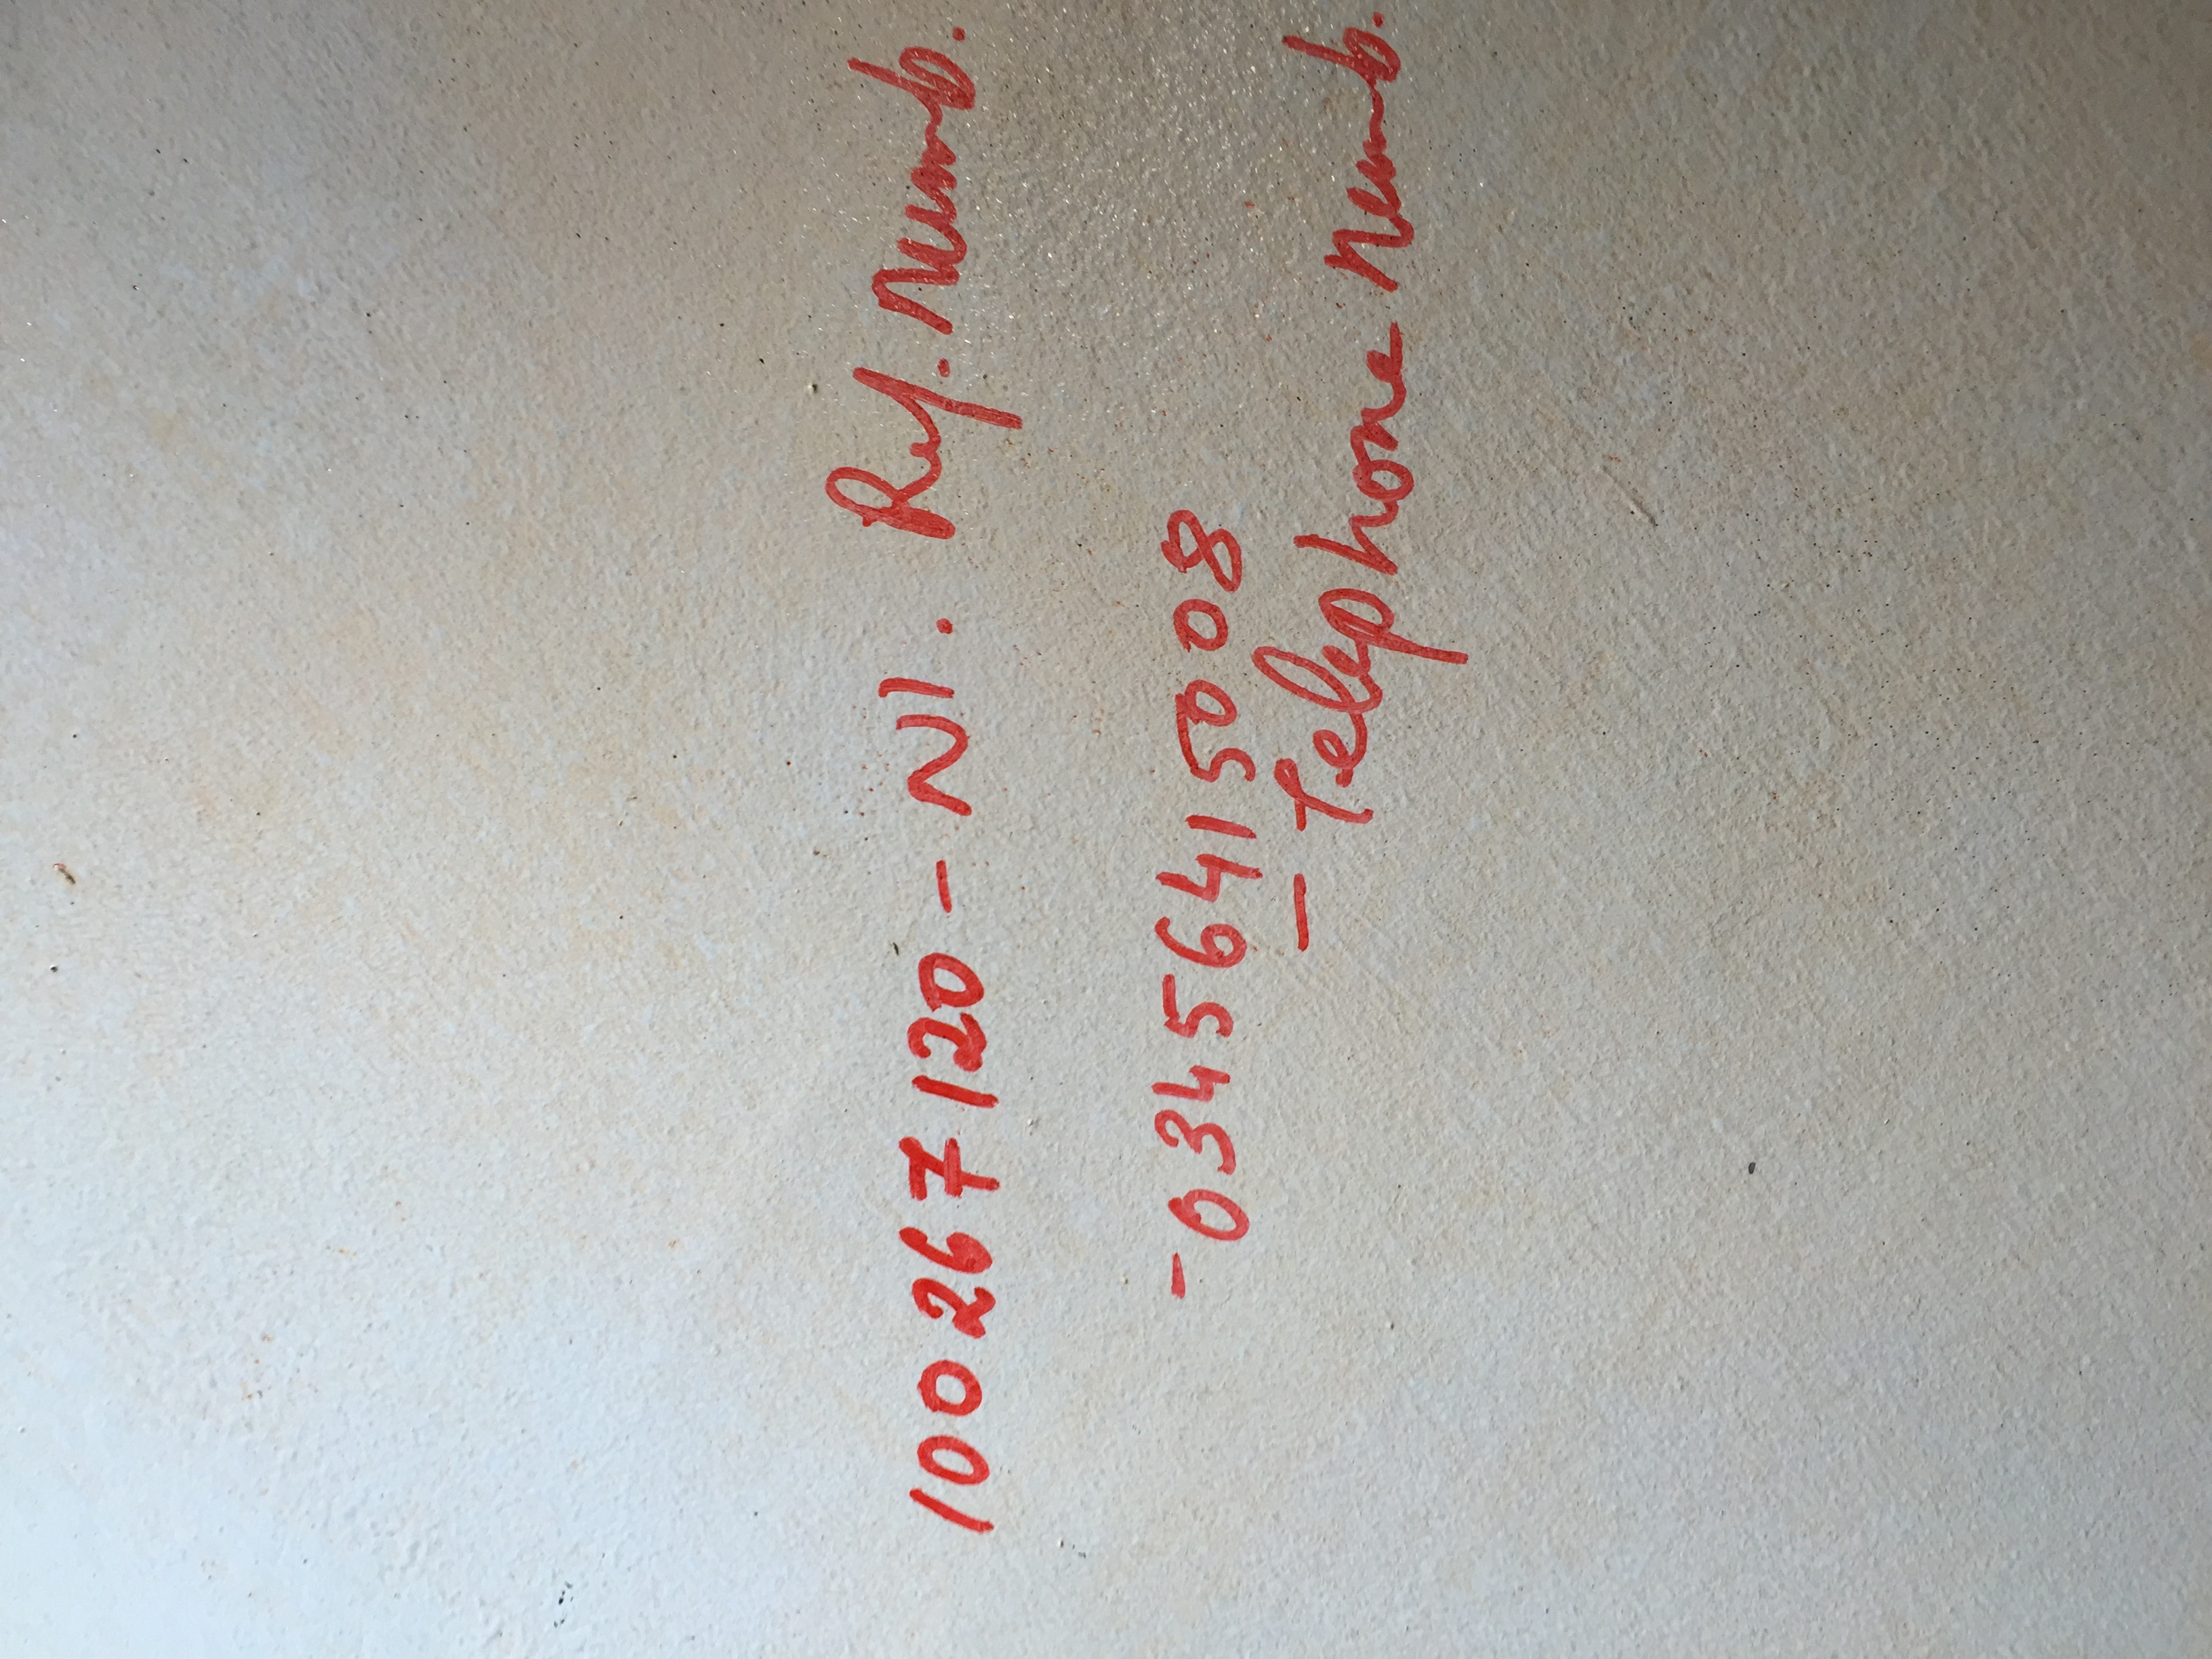 100267120 - NI. Ref. Numb.
- 03456415008
- Telephone Numb.